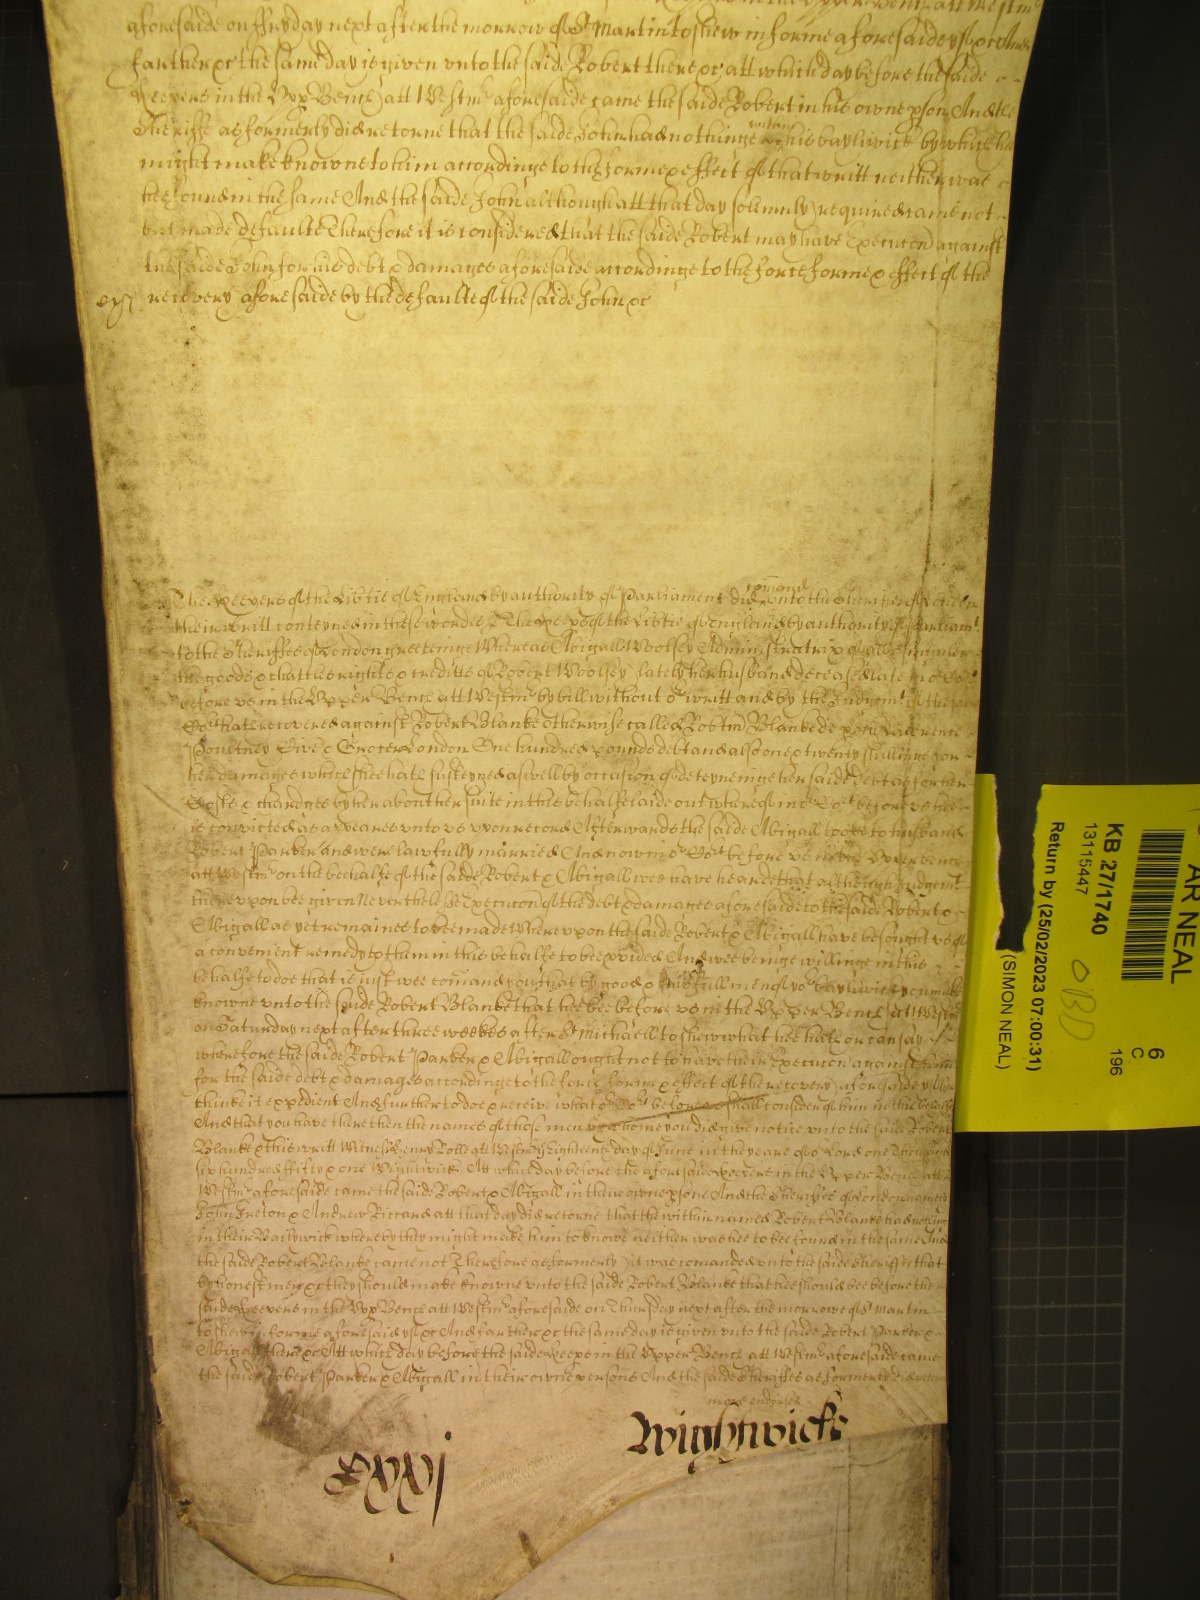 aforesaide on ffryday next after the morrow of St Martin to shew in forme aforesaide yf &c And
farther &c the same day is given unto the saide Robert there &c att which day before the saide
Keepers in the Upp Bench att Westmr aforesaide came the saide Robert in his owne pson And the
Sheriffe as formerly did retorne that the saide John had nothinge within his bayliwick by which he
might make knowne to him accordinge to the forme & effect of that writt neither was
hee found in the same And the saide John although att that day solemnly required came not
but made defaulte Therefore it is considered that the saide Robert may have Execucon against
the saide John for his debt & damages aforesaide accordinge to the force forme & effect of the
recovery aforesaide by the defaulte of the saide John &c
The Keepers of the Libtie of England by authority of Parliament did comand unto the Sheriffes of London
their writt conteyned in these wordes The Keeps of the Libtie of England by authority of Parliamt
to the Sheriffes of London greetinge Whereas Abigall Woolsey Administratrix of all & singuler
the goods & chattles rights & creditts of Robert Woolsey lately her husband deceased late in or Cort
before us in the Upper Bench att Westmr by bill without or writt and by the Judgmt of the same
Cort hath recovered against Robert Blanke otherwise called Robtm Blanke de poch Laurence
Poultney Civem & Grocer London One hundred pounds debt and also one & twenty shillings for
her damages which shee hath susteyned aswell by occasion of deteyneinge her saide debt as for her
Costs & chardges by her about her suite in this behalfe laide out whereof in or Cort before us hee
is convicted as appeares unto us uppon record Afterwards the saide Abigall tooke to husband
Robert Parker and were lawfully married And now in or Cort before us in the Upper bench
att Westmr on the beehalfe of the saide Robert & Abigall wee have heard that although Judgmt
thereuppon bee given Neverthelesse Execucon of the debt & damages aforesaide to the saide Robert &
Abigall as yet remaines to bee made Whereuppon the saide Robert & Abigall have besought us of
a convenient remedy to them in this behalfe to bee pvided And wee beinge willinge in this
behalfe to doe that is just wee comand you that by good & lawfull men of yor bayliwick you make
knowne unto the saide Robert Blanke that hee bee before us in the Upper Bench att Westmr
on Saturday next after three weekes after St Michaell to shew what hee hath or can say
wherefore the saide Robert Parker & Abigall ought not to have their Execucon against him
for the saide debt & damages accordinge to the force forme & effect of the recovery aforesaide yf hee
thinke it expedient And further to doe & receive what or Cort before us shall consider of him in this behalfe
And that you have there then the names of those men by whome you did give notice unto the saide Robert
Blanke & this writt Witnes Henry Roll att Westmr the Eighteenth day of June in the yeare of or Lord one Thousand
six hundred ffifty & one Wightwick Att which day before the aforesaide Keepers in the Upper Bench att
Westmr aforesaide came the saide Robert & Abigall in their owne psons And the Sheriffes of London namely
John Ireton & Andrew Riccard att that day did retorne that the within named Robert Blanke had nothing
in their Bailywick whereby they might make him to knowe neither was hee to bee found in the same And
the saide Robert Blanke came not Therefore as formerly it was comanded unto the saide Sheriffes that
by honest men &c they should make knowne unto the saide Robert Blanke that hee should bee before the
saide Keepers in the Upp Bench att Westmr aforesaide on Thursday next after the morrowe of St Martin
to shew in forme aforesaide yf &c And farther &c the same day is given unto the saide Robert Parker &
Abigall there &c Att which day before the saide Keeps in the Upper Bench att Westmr aforesaide came
the saide Robert Parker & Abigall in their owne persons And the saide Sheriffes as formerly did retorne
Wightwick
AR NEAL
KB 27/1740
13115447
Return by (25/02/2023 07:00:31)
(SIMON NEAL)
6
C
196
OBD